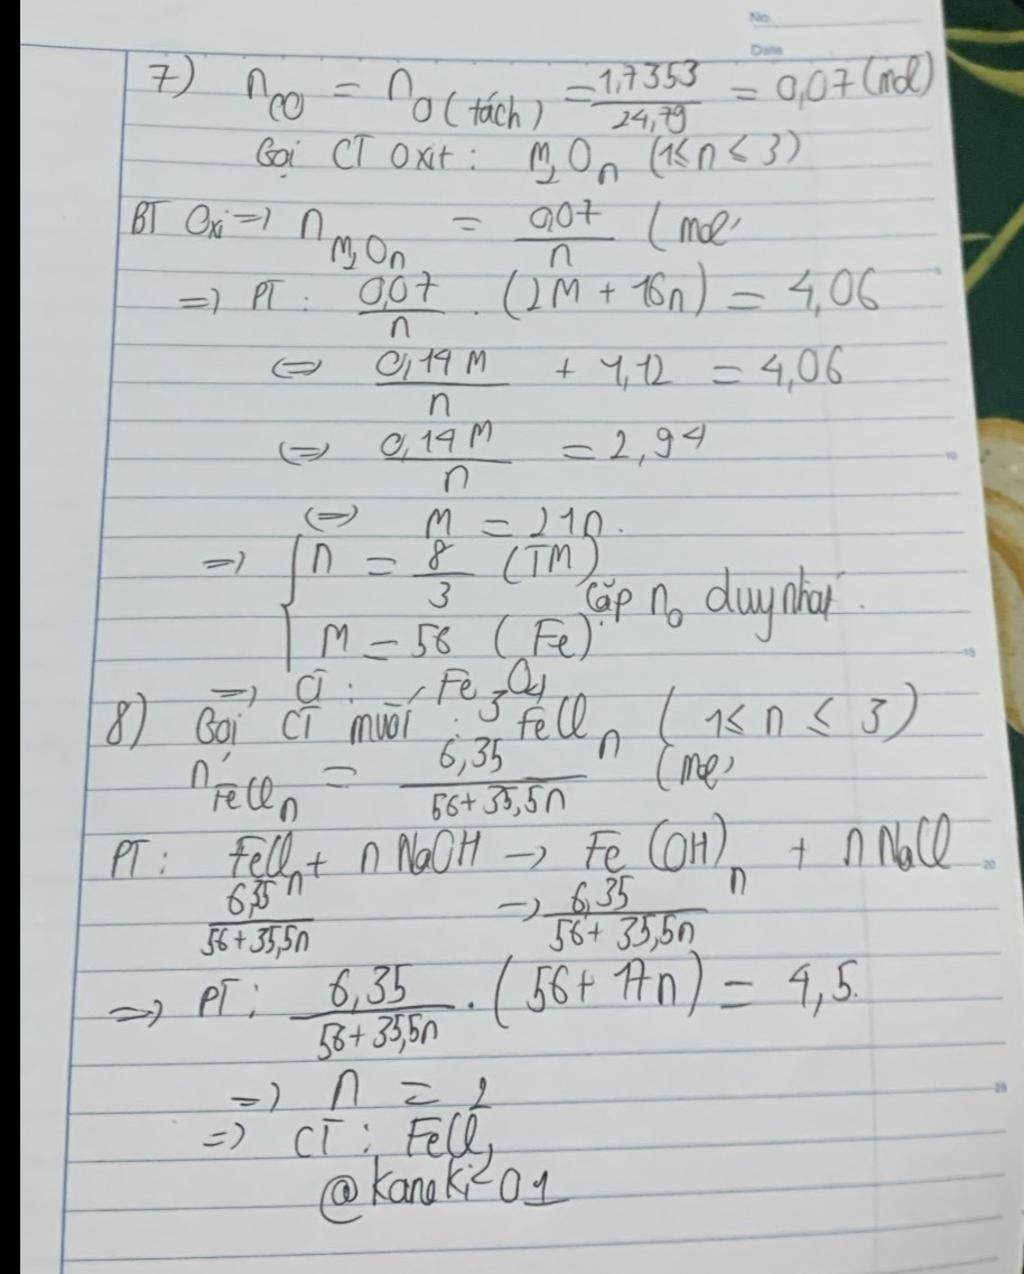 No.
Date
7) nCO = nO (tách) = 1,7353/24,79 = 0,07 (mol)
Gọi CT Oxit: M2On (1≤ n ≤ 3)
BT Oxi => nM2On = 0,07/n (mol)
=> PT: 0,07/n . (2M + 16n) = 4,06
<=> 0,14M/n + 1,12 = 4,06
<=> 0,14M/n = 2,94
<=> M = 21n.
=> { n = 8/3 (TM)
cặp no duy nhất.
M = 56 (Fe)
=> CT: Fe3O4
8) Gọi CT muối: FeCln (1≤ n ≤ 3)
nFeCln = 6,35/56+35,5n (mol)
PT: FeCln + n NaOH -> Fe(OH)n + n NaCl
6,35/56+35,5n -> 6,35/56+35,5n
=> PT: 6,35/56+35,5n . (56+17n) = 4,5.
=> n = 2
=> CT: FeCl2
@kaneki-01
10
15
20
25